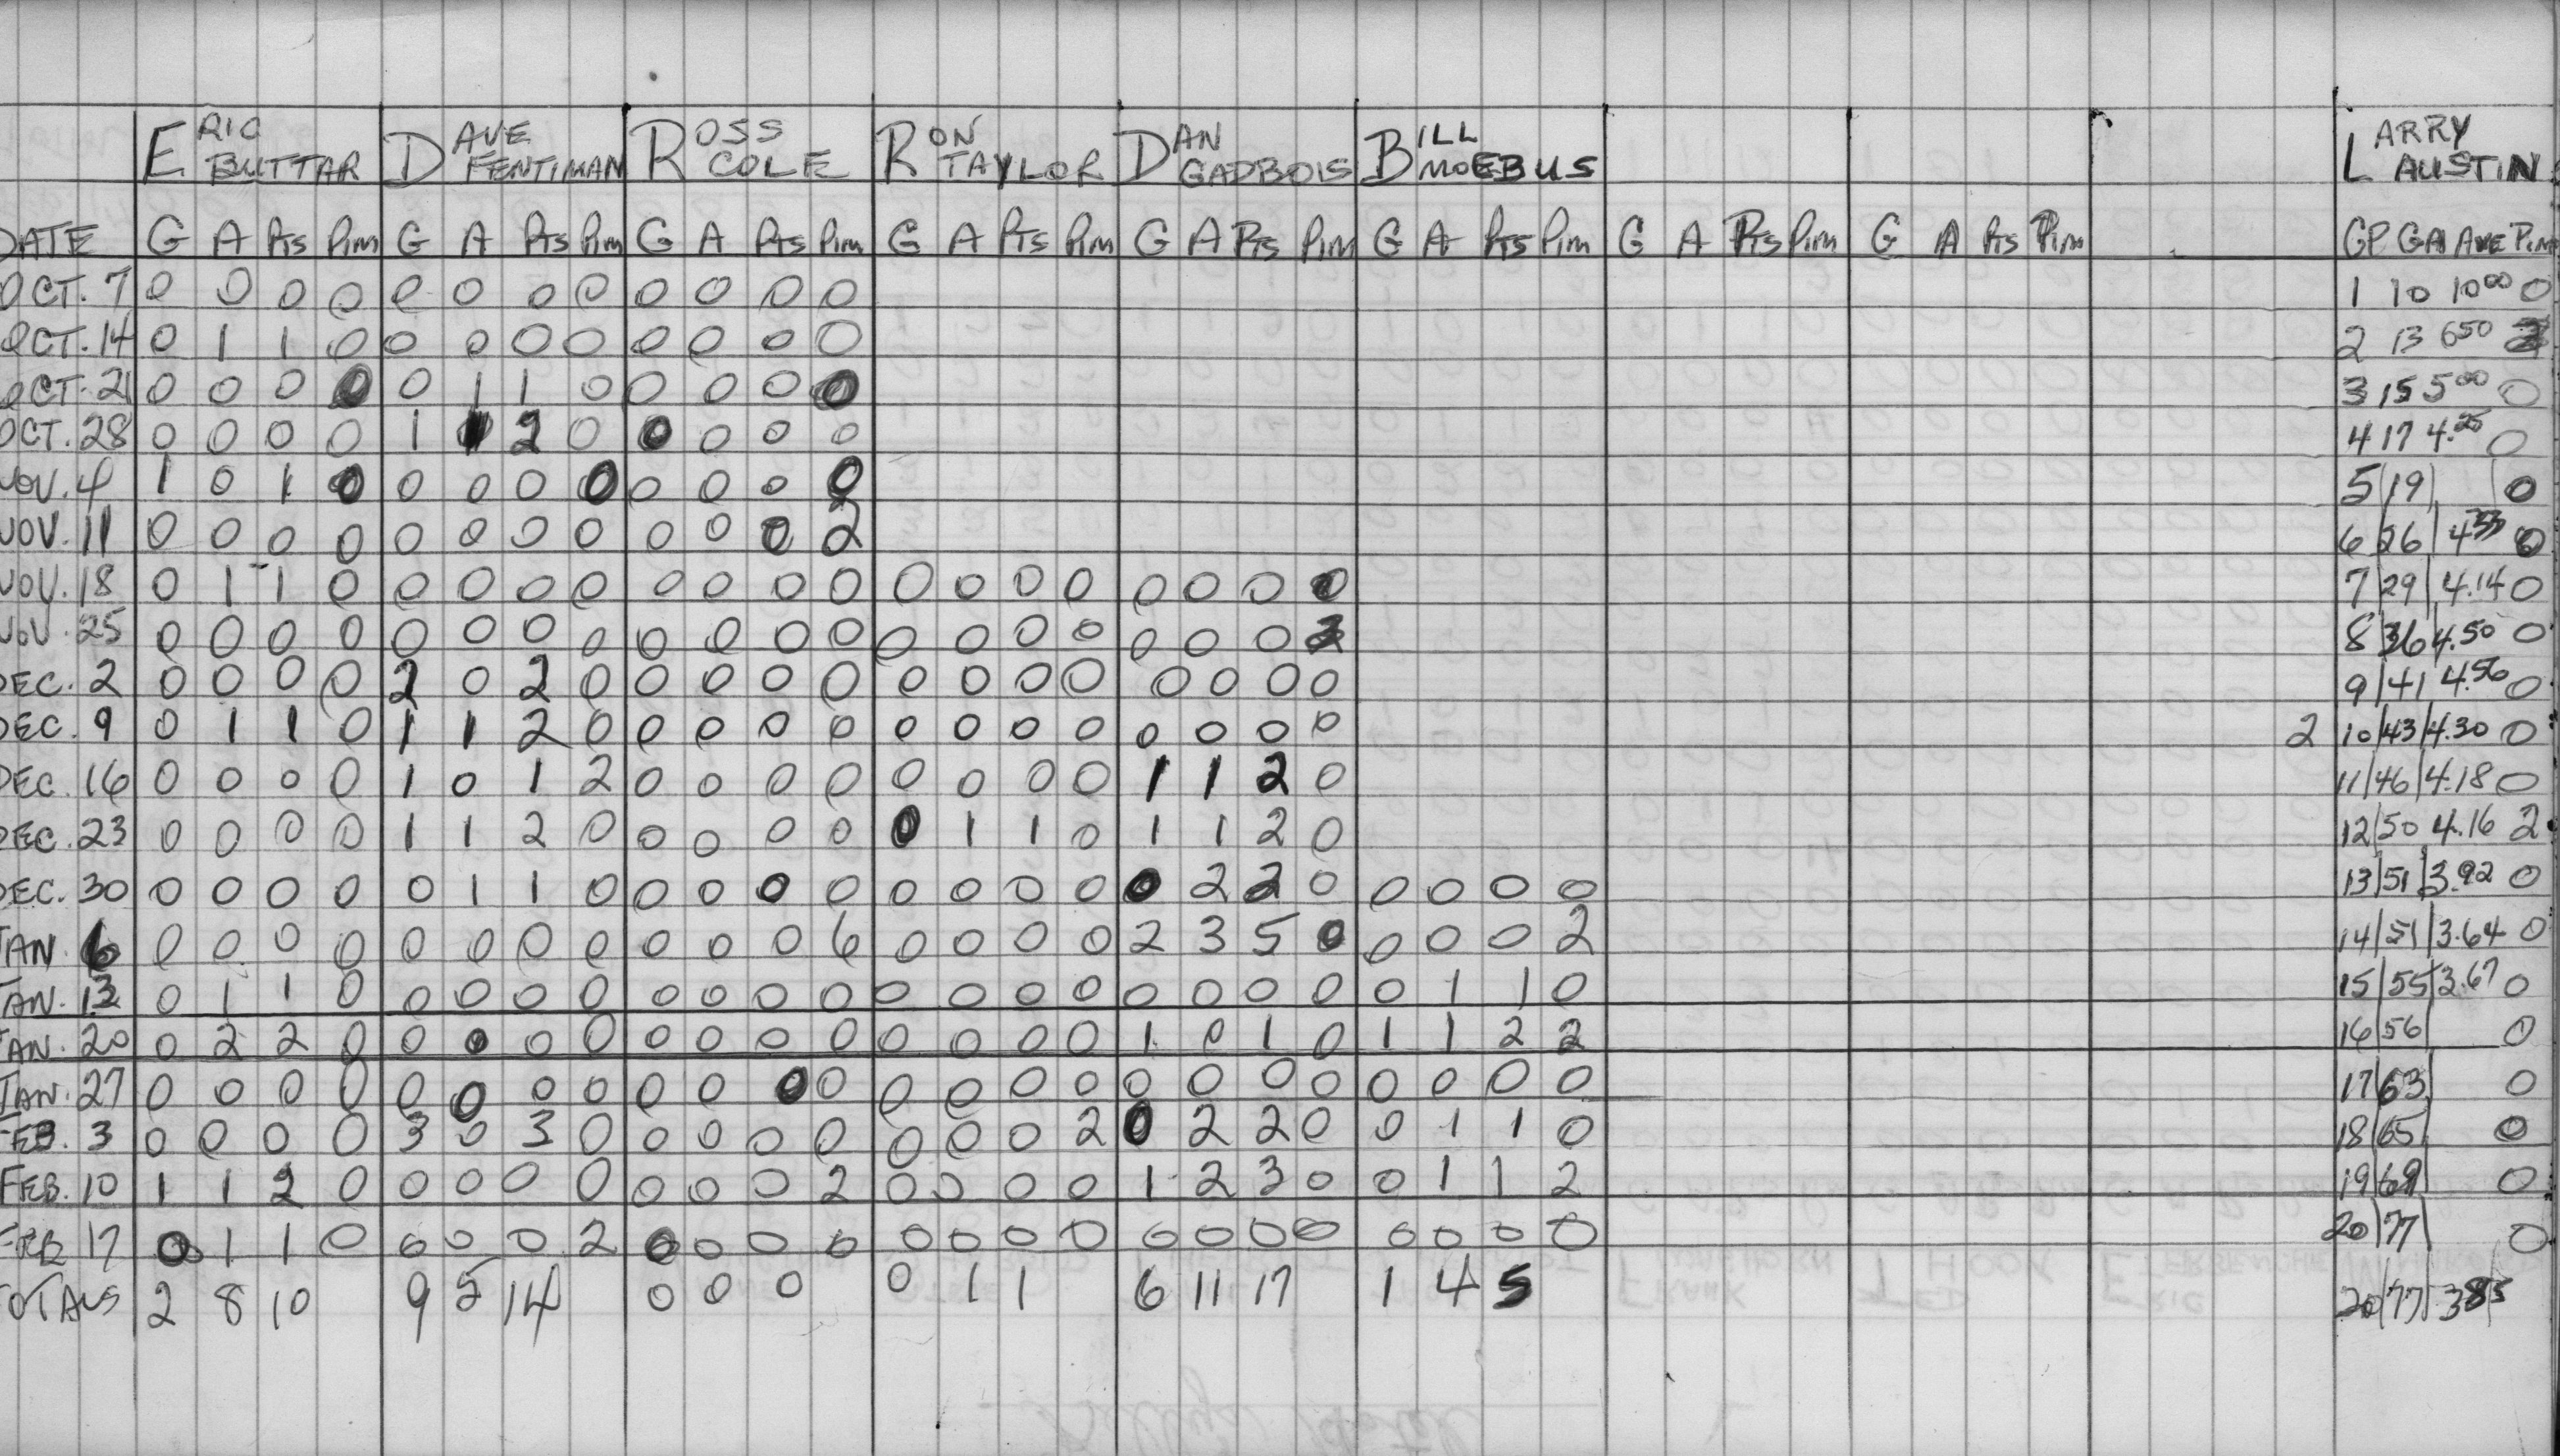 ERIC BUTTAR DAVE FENTIMAN ROSS COLE RON TAYLOR DAN GADBOIS BILL MOEBUS LARRY AUSTIN
DATE G A Pts Pim G A Pts Pim G A Pts Pim G A Pts Pim G A Pts Pim G A Pts Pim G A Pts Pim G A Pts Pim GP GA AVE Pim
OCT. 7 0 0 0 0 0 0 0 0 0 0 0 0 1 10 10 00 0
OCT. 14 0 1 1 0 0 0 0 0 0 0 0 0 2 13 6 50 2
OCT. 21 0 0 0 0 0 1 1 0 0 0 0 0 3 15 5 00 0
OCT. 28 0 0 0 0 1 1 2 0 0 0 0 0 4 17 4.25 0
NOV. 4 1 0 1 0 0 0 0 0 0 0 0 0 5 19 0
NOV. 11 0 0 0 0 0 0 0 0 0 0 0 2 6 26 4 33 0
NOV. 18 0 1 1 0 0 0 0 0 0 0 0 0 0 0 0 0 0 0 0 0 7 29 4.14 0
NOV. 25 0 0 0 0 0 0 0 0 0 0 0 0 0 0 0 0 0 0 0 2 8 36 4.50 0
DEC. 2 0 0 0 0 2 0 2 0 0 0 0 0 0 0 0 0 0 0 0 0 9 41 4.56 0
DEC. 9 0 1 1 0 1 1 2 0 0 0 0 0 0 0 0 0 0 0 0 0 2 10 43 4.30 0
DEC. 16 0 0 0 0 1 0 1 2 0 0 0 0 0 0 0 0 1 1 2 0 11 46 4.18 0
DEC. 23 0 0 0 0 1 1 2 0 0 0 0 0 0 1 1 0 1 1 2 0 12 50 4.16 2
DEC. 30 0 0 0 0 0 1 1 0 0 0 0 0 0 0 0 0 0 2 2 0 0 0 0 0 13 51 3.92 0
JAN. 6 0 0 0 0 0 0 0 0 0 0 0 6 0 0 0 0 2 3 5 0 0 0 0 2 14 51 3.64 0
JAN. 13 0 1 1 0 0 0 0 0 0 0 0 0 0 0 0 0 0 0 0 0 0 1 1 0 15 55 3.67 0
JAN. 20 0 2 2 0 0 0 0 0 0 0 0 0 0 0 0 0 1 0 1 0 1 1 2 2 16 56 0
JAN. 27 0 0 0 0 0 0 0 0 0 0 0 0 0 0 0 0 0 0 0 0 0 0 0 0 17 63 0
FEB. 3 0 0 0 0 3 0 3 0 0 0 0 0 0 0 0 2 0 2 2 0 0 1 1 0 18 65 0
FEB. 10 1 1 2 0 0 0 0 0 0 0 0 2 0 0 0 0 1 2 3 0 0 1 1 2 19 69 0
FEB 17 0 1 1 0 0 0 0 2 0 0 0 0 0 0 0 0 0 0 0 0 0 0 0 0 20 77 0
TOTALS 2 8 10 9 5 14 0 0 0 0 1 1 6 11 17 1 4 5 20 77 3 85